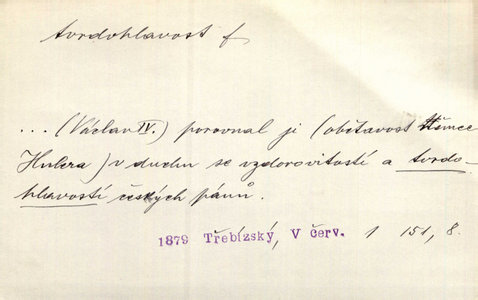 tvrdohlavost f
... (Václav IV.) porovnal ji (obětavost
Hulera) v duchu se vzdorovitostí a tvrdo-
hlavostí českých pánů.
1879 Třebízský, V červ. 1 151, 8.